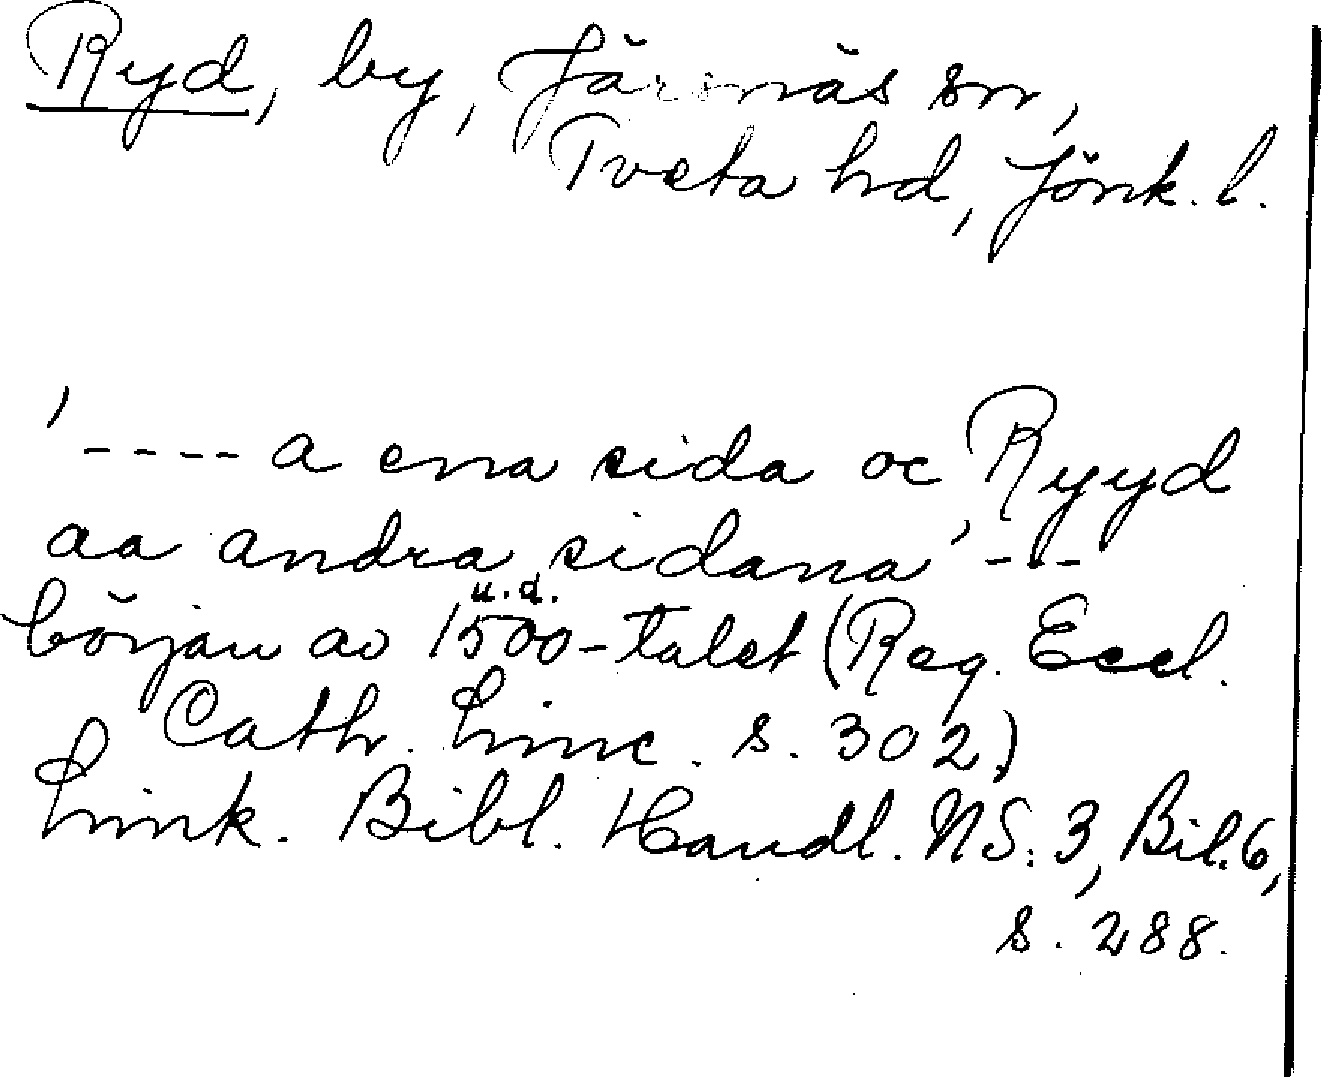 Ryd, by, Järsnäs sn,
Tveta hd, Jönk. l.
'---- a ena sida oc Ryyd
aa andra sidana' ---
u.d.
början av 1500-talet (Reg. Eccl.
Cath. Linc. s. 302)
Link. Bibl. Handl. NS: 3, Bil. 6,
s. 288.